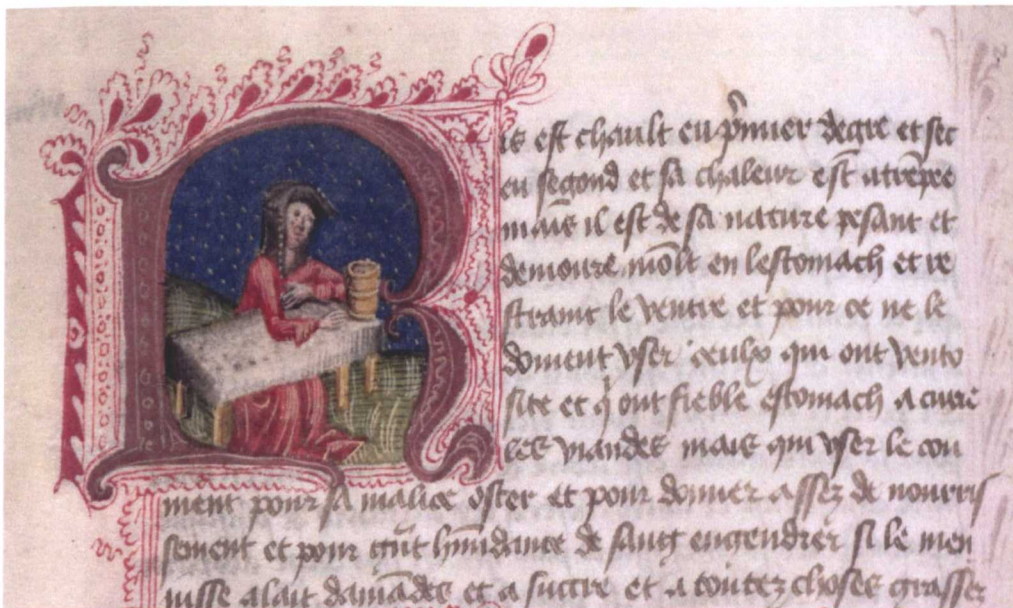 Ris est chault en p̃mier degre et sec
en segond et sa chaleur est atrẽpee
mais il est de sa nature pesant et
demoure mõlt en lestomach et re
straint le ventre et pour ce ne le
doiuent vser ceulx qui ont vento
site et q̃ ont fieble estomach a cuire
ses viandes mais qui vser le con
uient pour sa malice oster et pour donner assez de nourris
sement et pour humidance de sang engendrer si le men
iusse alait damãdes et a succre et a toutez choses grasses